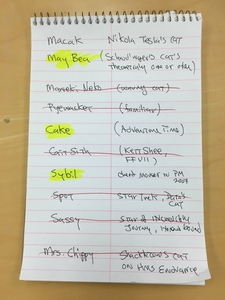 Macak Nikola Tesla's cat
May Bea (Schrodinger's cat's
theoretically one or other)
Maneki Neko (waving cat)
Pyewacket (familiar)
Cake (Adventure Time)
Cait Sith (Kett Shee,
FFVII)
Sybil chief mouser to PM
2007
Spot Star Trek, Data's
Cat
Sassy Incredibly
Journey, Homeward bound
Mrs. Chippy Shackleton's cat
on HMS Endurance